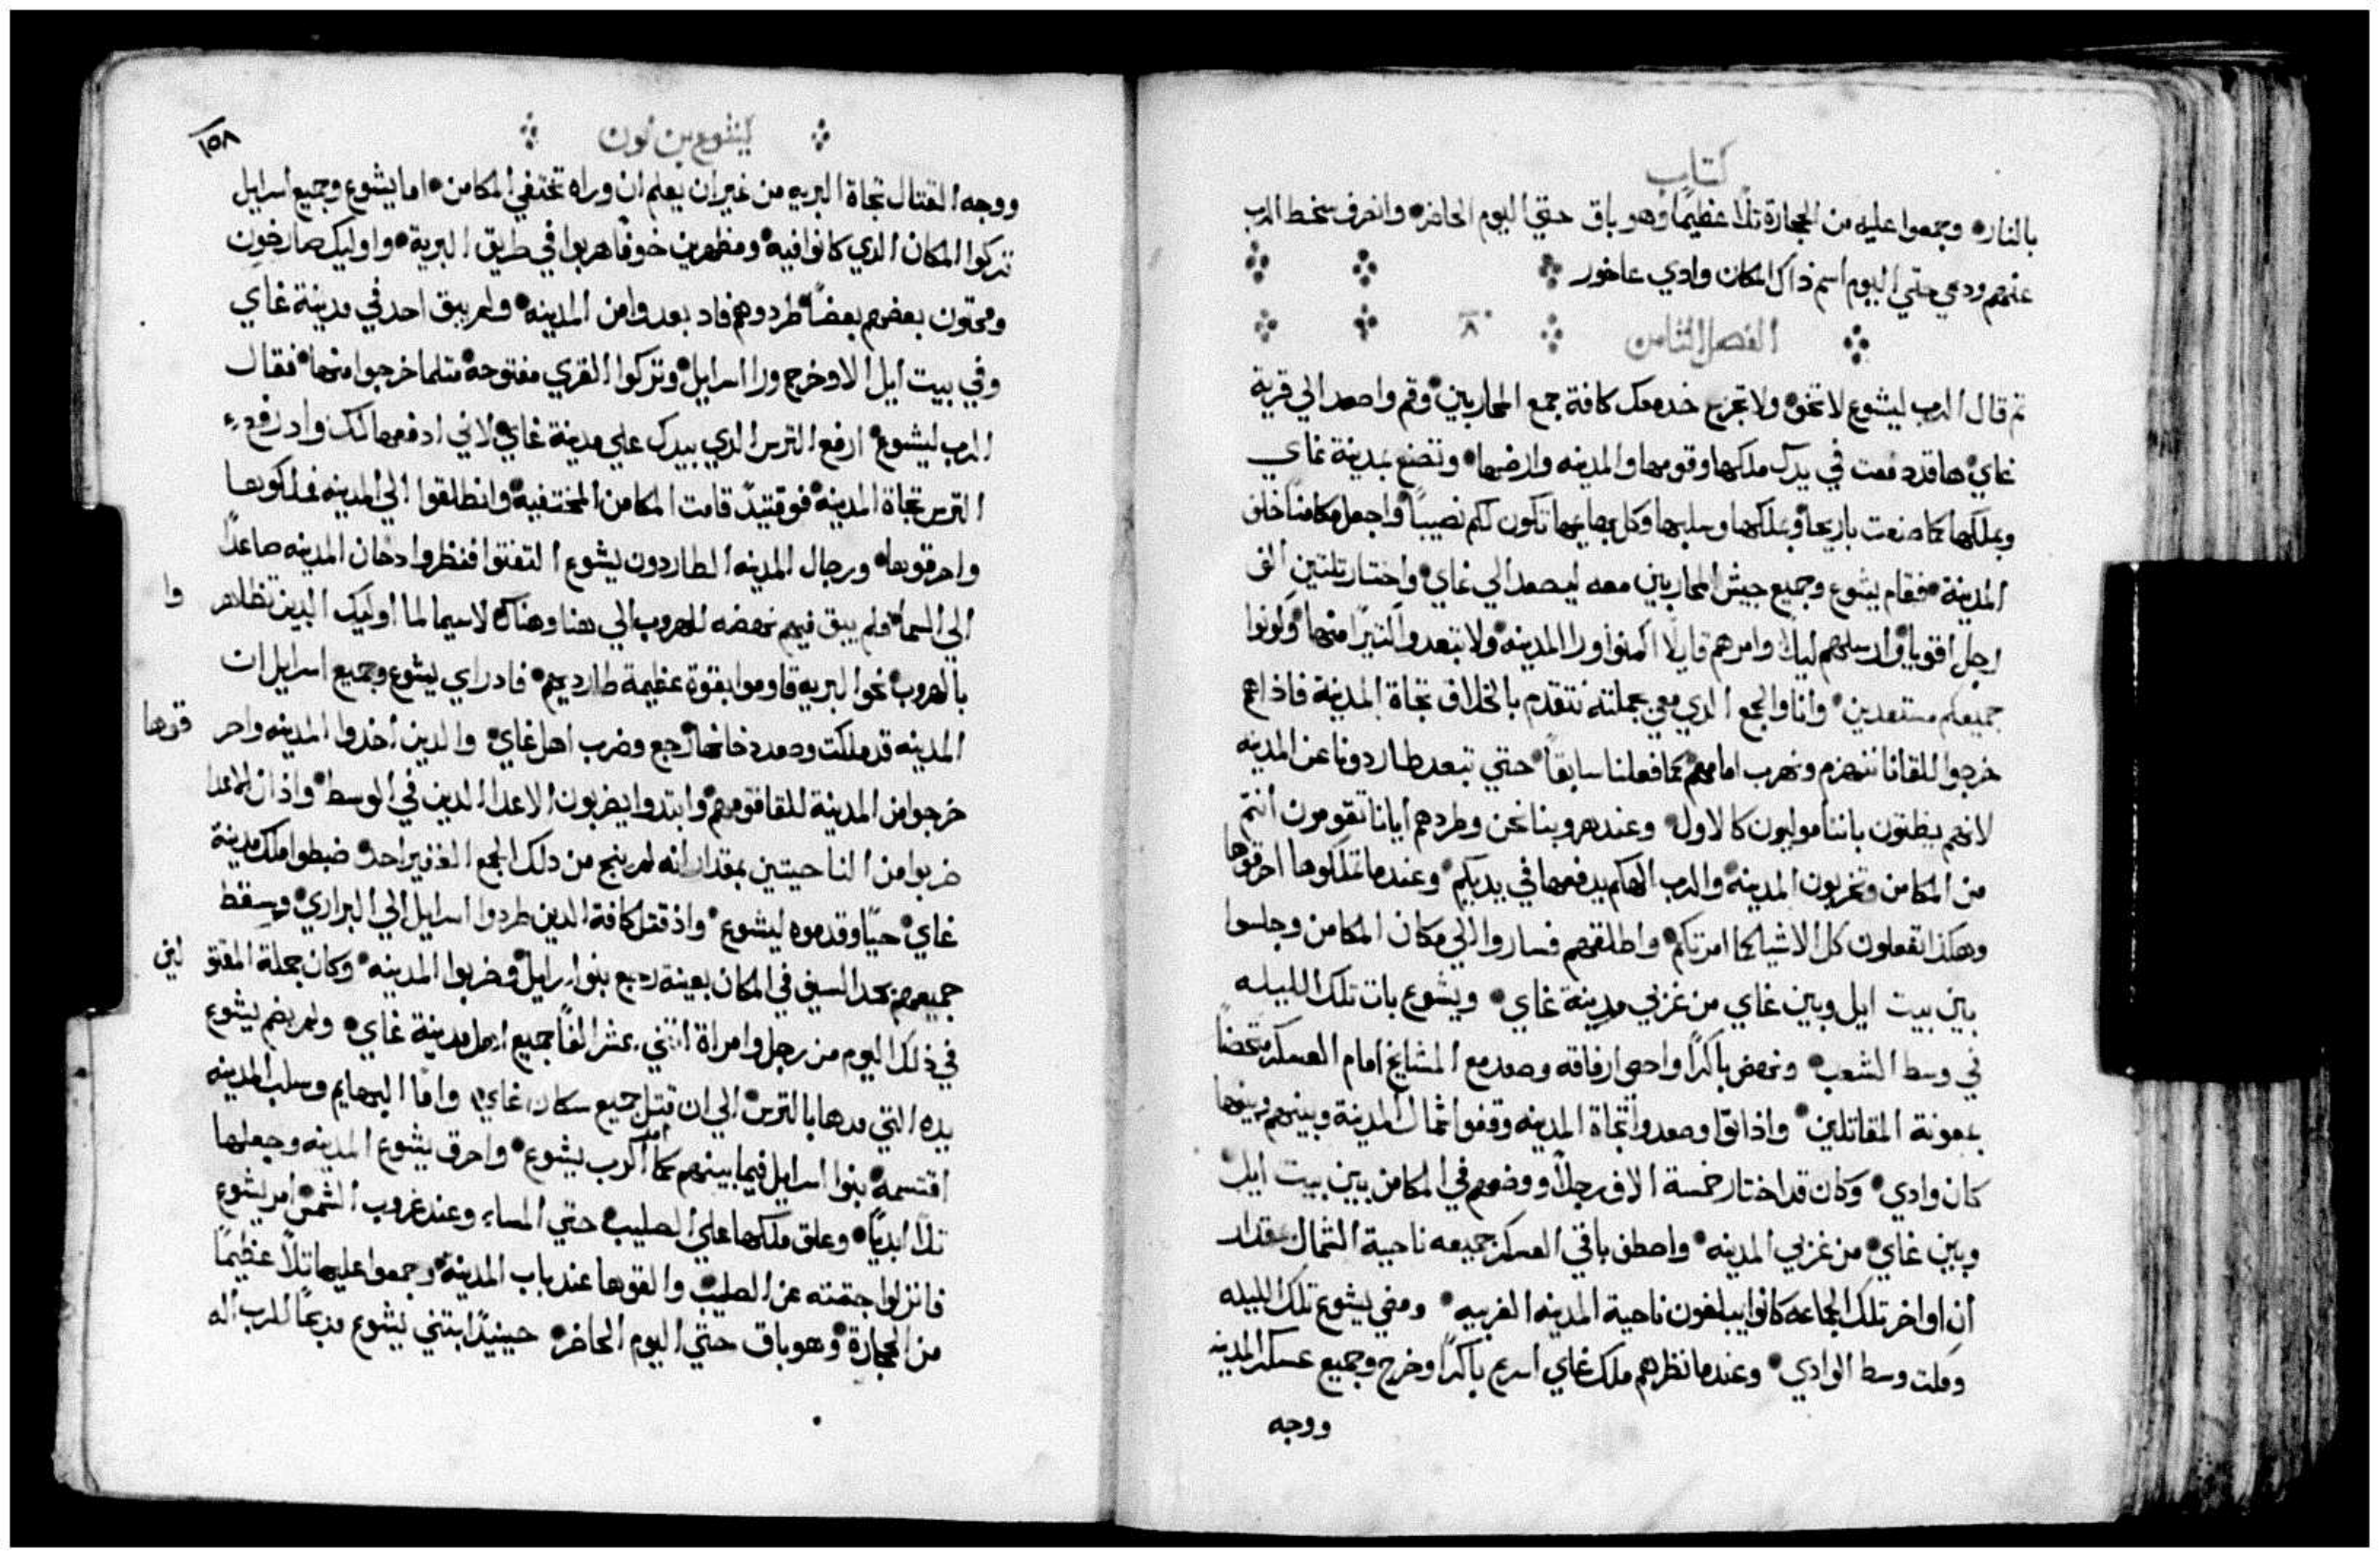 كتاب
بالنار وجمعوا عليه من الحجارة تلًا عظيمًا وهو باق حتي اليوم الحاضر وانصرف سخط الرب
عنهم ودعي حتي اليوم اسم ذاك المكان وادي عاخور
الفصل الثامن ٨
ثم قال الرب ليشوع لا تخف ولا تجزع خد معك كافة جمع المحاربين وقم واصعد الي قرية
غاي ها قد دفعت في يدك ملكها وقومها والمدينه وارضها وتصنع بمدينة غاي
وبملكها كما صنعت باريحا وبملكها وسلبها وكل بهايمها تكون لكم نصيباً واجعل مكامنًا خلف
المدينة فقام يشوع وجميع جيش المحاربين معه ليصعد الي غاي واختار تلتين الف
رجل اقويا وارسلهم ليلًا وامرهم قايلًا اكمنوا ورا المدينه ولا تبعدوا كتيرًا منها وكونوا
جميعكم مستعدين وانا والجمع الدي معي بجملته نتقدم بالخلاف تجاة المدينة فاذا هم
خرجوا للقانا ننهزم ونهرب امامهم كما فعلنا سابقاً حتي تبعد طاردونا عن المدينه
لانهم يظنون باننا موليون كالاول وعند هروبنا نحن وطردهم ايانا تقومون انتم
من المكامن وتخربون المدينه والرب الهكم يدفعها في يديكم وعندما تملكوها احرقوها
وهكذا تفعلون كل الاشيا كما امرتكم واطلقهم فساروا الي مكان المكامن وجلسوا
بين بيت ايل وبين غاي من غربي مدينة غاي ويشوع بات تلك الليله
في وسط الشعب ونهض باكرًا واحصي ارفاقه وصعد مع المشايخ امام العسكر متحضاً
بمعونة المقاتلين واذ اتوا وصعدوا تجاة المدينه وقفوا شمال المدينة وبينهم وبينها
كان وادي وكان قد اختار خمسة الاف رجلًا ووضعهم في المكامن بين بيت ايل
وبين غاي من غربي المدينه واصطف باقي العسكر جميعه ناحية الشمال بمقدار
ان اواخر تلك الجماعه كانوا يبلغون ناحية المدينه الغربيه ومضي يشوع تلك الليله
وملت وسط الوادي وعندما نظرهم ملك غاي اسرع باكرًا وخرج وجميع عسكر المدينه
ووجه
يشوع بن نون
١٥٨
ووجه القتال تجاة البريه من غير ان يعلم ان وراه تختفي المكامن اما يشوع وجميع اسرايل
تركوا المكان الدي كانوا فيه ومظهرين خوفًا هربوا في طريق البرية واوليك صارخون
ومحتون بعضهم بعضاً طردوهم فاد بعدوا من المدينه ولم يبق احد في مدينة غاي
وفي بيت ايل الا وخرج ورا اسرايل وتركوا القري مفتوحة متلما خرجوا منها فقال
الرب ليشوع ارفع الترس الدي بيدك علي مدينة غاي لاني ادفعها لك واد رفع
الترس تجاة المدينة فوقتيدً قامت المكامن المختفية وانطلقوا الي المدينه فملكوها
واحرقوها ورجال المدينه الطاردون يشوع التفتوا فنظروا دخان المدينه صاعدًا
الي السما فلم يبق فيهم نهضه للهروب الي هنا وهناك لا سيما لما اوليك الدين تظاهروا
بالهروب نحو البريه قاوموا بقوة عظيمة طارديهم فاد راي يشوع وجميع اسرايل ان
المدينه قد ملكت وصعد دخانها رجع وضرب اهل غاي والدين اخدوا المدينه واحرقوها
خرجوا من المدينة للقا قومهم وابتدوا يضربون الاعدا الدين في الوسط واذ ان الاعدا
ضربوا من الناحيتين بمقدار انه لم ينج من دلك الجمع الغفير احد ضبطوا ملك مدينة
غاي حيًا وقدموه ليشوع واذ قتل كافة الدين طردوا اسرايل الي البراري وسقط
جميعهم بحد السيف في المكان بعينة رجع بنوا اسرايل وضربوا المدينه وكان جملة المقتولين
في ذلك اليوم من رجل وامراة اتني عشر الفاً جميع اهل مدينة غاي ولم يضم يشوع
يده التي مدها بالترس الي ان قتل جميع سكان غاي وامًا البهايم وسلب المدينه
اقتسمه بنوا اسرايل فيما بينهم كما امر الرب يشوع واحرق يشوع المدينه وجعلها
تلًا ابديًا وعلق ملكها علي الصليب حتي المساء وعند غروب الشمس امر يشوع
فانزلوا جتته عن الصليب والقوها عند باب المدينة وجمعوا عليها تلًا عظيمًا
من الحجارة وهو باق حتي اليوم الحاضر حينيدًا ابتني يشوع مدبحًا للرب اله